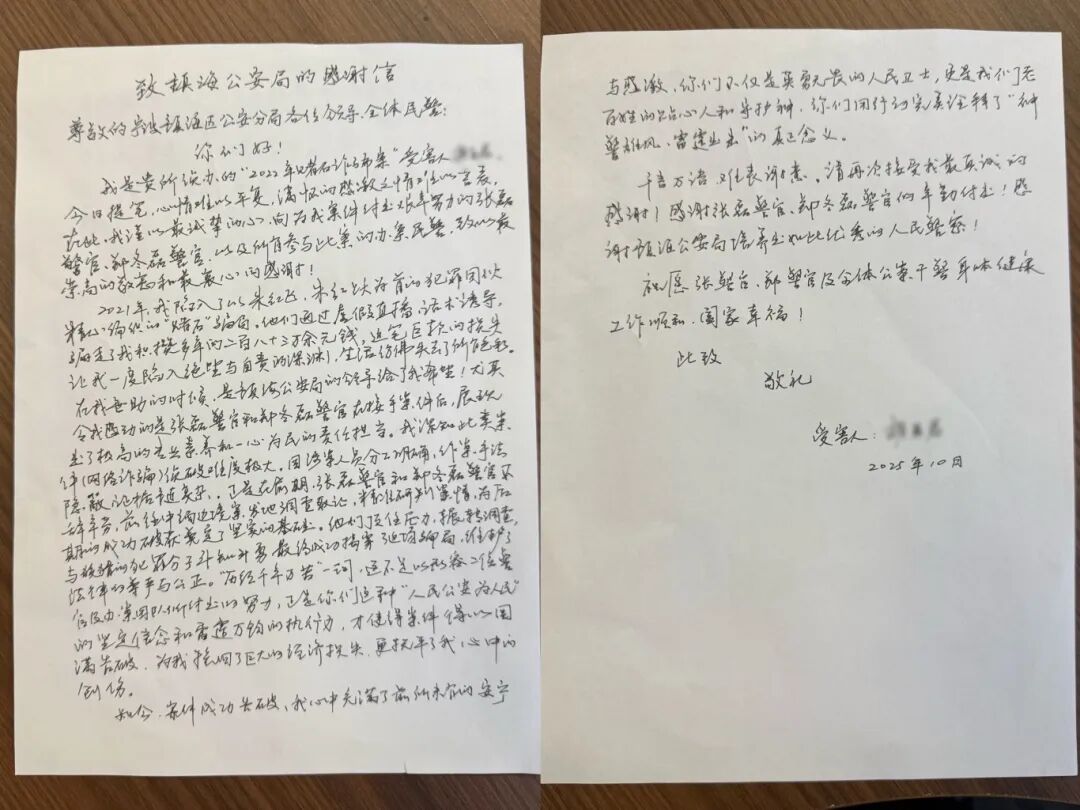 致镇海公安局的感谢信
尊敬的宁波镇海区公安分局各位领导、全体民警：
你们好！
我是贵所侦办的"2021年赌石诈骗案"受害人
今日提笔，心情难以平复，满怀的感激之情难以言表。
在此，我谨以最诚挚的心，向为我案件付出艰辛努力的张磊
警官、郑冬磊警官，以及所有参与此案的办案民警，致以最
崇高的敬意和最衷心的感谢！
2021年，我陷入了以朱红飞、朱红以为首的犯罪团伙
精心编织的"赌石"骗局。他们通过虚假直播、话术诱导，
骗走了我积攒多年的二百八十三万余元钱，这笔巨款的损失
让我一度陷入绝望与自责的深渊，生活仿佛失去了所有色彩。
在我无助的时候，是镇海公安局的领导给了我希望！尤其
令我感动的是张磊警官和郑冬磊警官在接手案件后，展现
出了极高的专业素养和一心为民的责任担当。我深知此类案
件（网络诈骗）侦破难度极大。因涉案人员分工明确，作案手法
隐蔽，证据链复杂。正是在前期，张磊警官和郑冬磊警官不
辞辛劳，前往中缅边境案发地调查取证，精准研判案情，为后
期的成功破获奠定了坚实的基础。他们顶住压力，辗转调查，
与狡猾的犯罪分子斗智斗勇，最终成功揭穿了这场骗局，维护了
法律的尊严与公正。"历经千辛万苦"一词，还不足以形容二位警
官及办案团队所付出的努力，正是你们这种"人民公安为人民"
的坚定信念和雷霆万钧的执行力，才使得案件得以圆
满告破，为我挽回了巨大的经济损失，更抚平了我心中的
创伤。
如今，案件成功告破，我心中充满了前所未有的安宁
与感激，你们不仅是英勇无畏的人民卫士，更是我们老
百姓的贴心人和守护神，你们用行动完美诠释了"神
警雄风、雷霆出击"的真正含义。
千言万语，难表谢意。请再次接受我最真诚的
感谢！感谢张磊警官、郑冬磊警官的辛勤付出！感
谢镇海公安局培养出如此优秀的人民警察！
祝愿张警官、郑警官及全体公安干警身体健康
工作顺利、阖家幸福！
此致
敬礼
受害人：
2025年10月